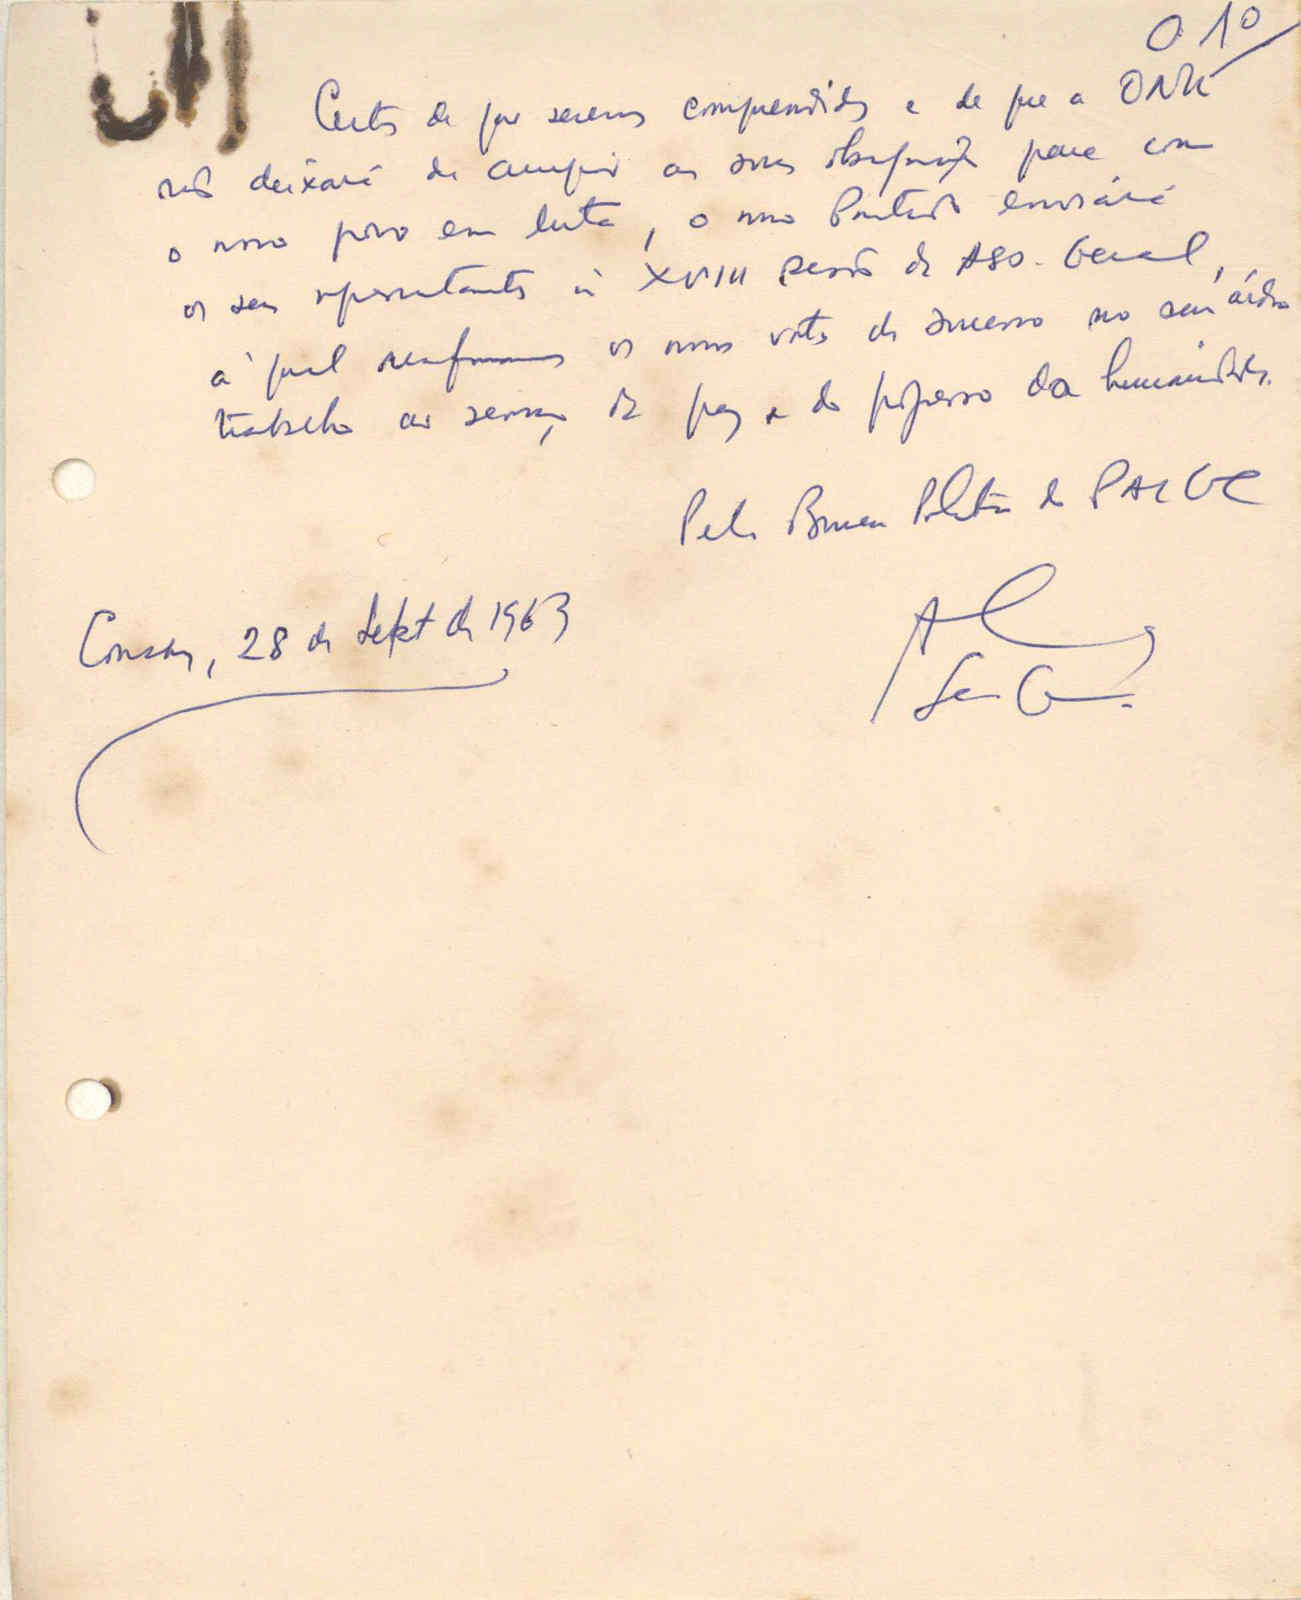 010
Certos de que seremos compreendidos e de que a ONU
não deixará de cumprir as suas obrigações para com
o nosso povo em luta, o nosso Partido enviará
os seus representantes à XVIII sessão da Ass. Geral,
à qual reafirmamos os nossos votos de sucesso no seu árduo
trabalho ao serviço da paz e do progresso da humanidade.
Pelo Bureau Político do PAIGC
Conakry, 28 de Sept de 1963
Sec. G.